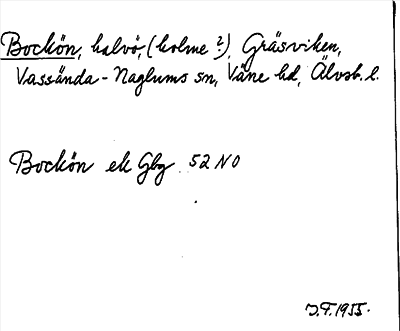 Bockön, halvö, (holme ?), Gräsviken,
Vassända-Naglums sn, Väne hd, Älvsb. l.
Bockön ek Gbg 52 NO
I.F. 1955.